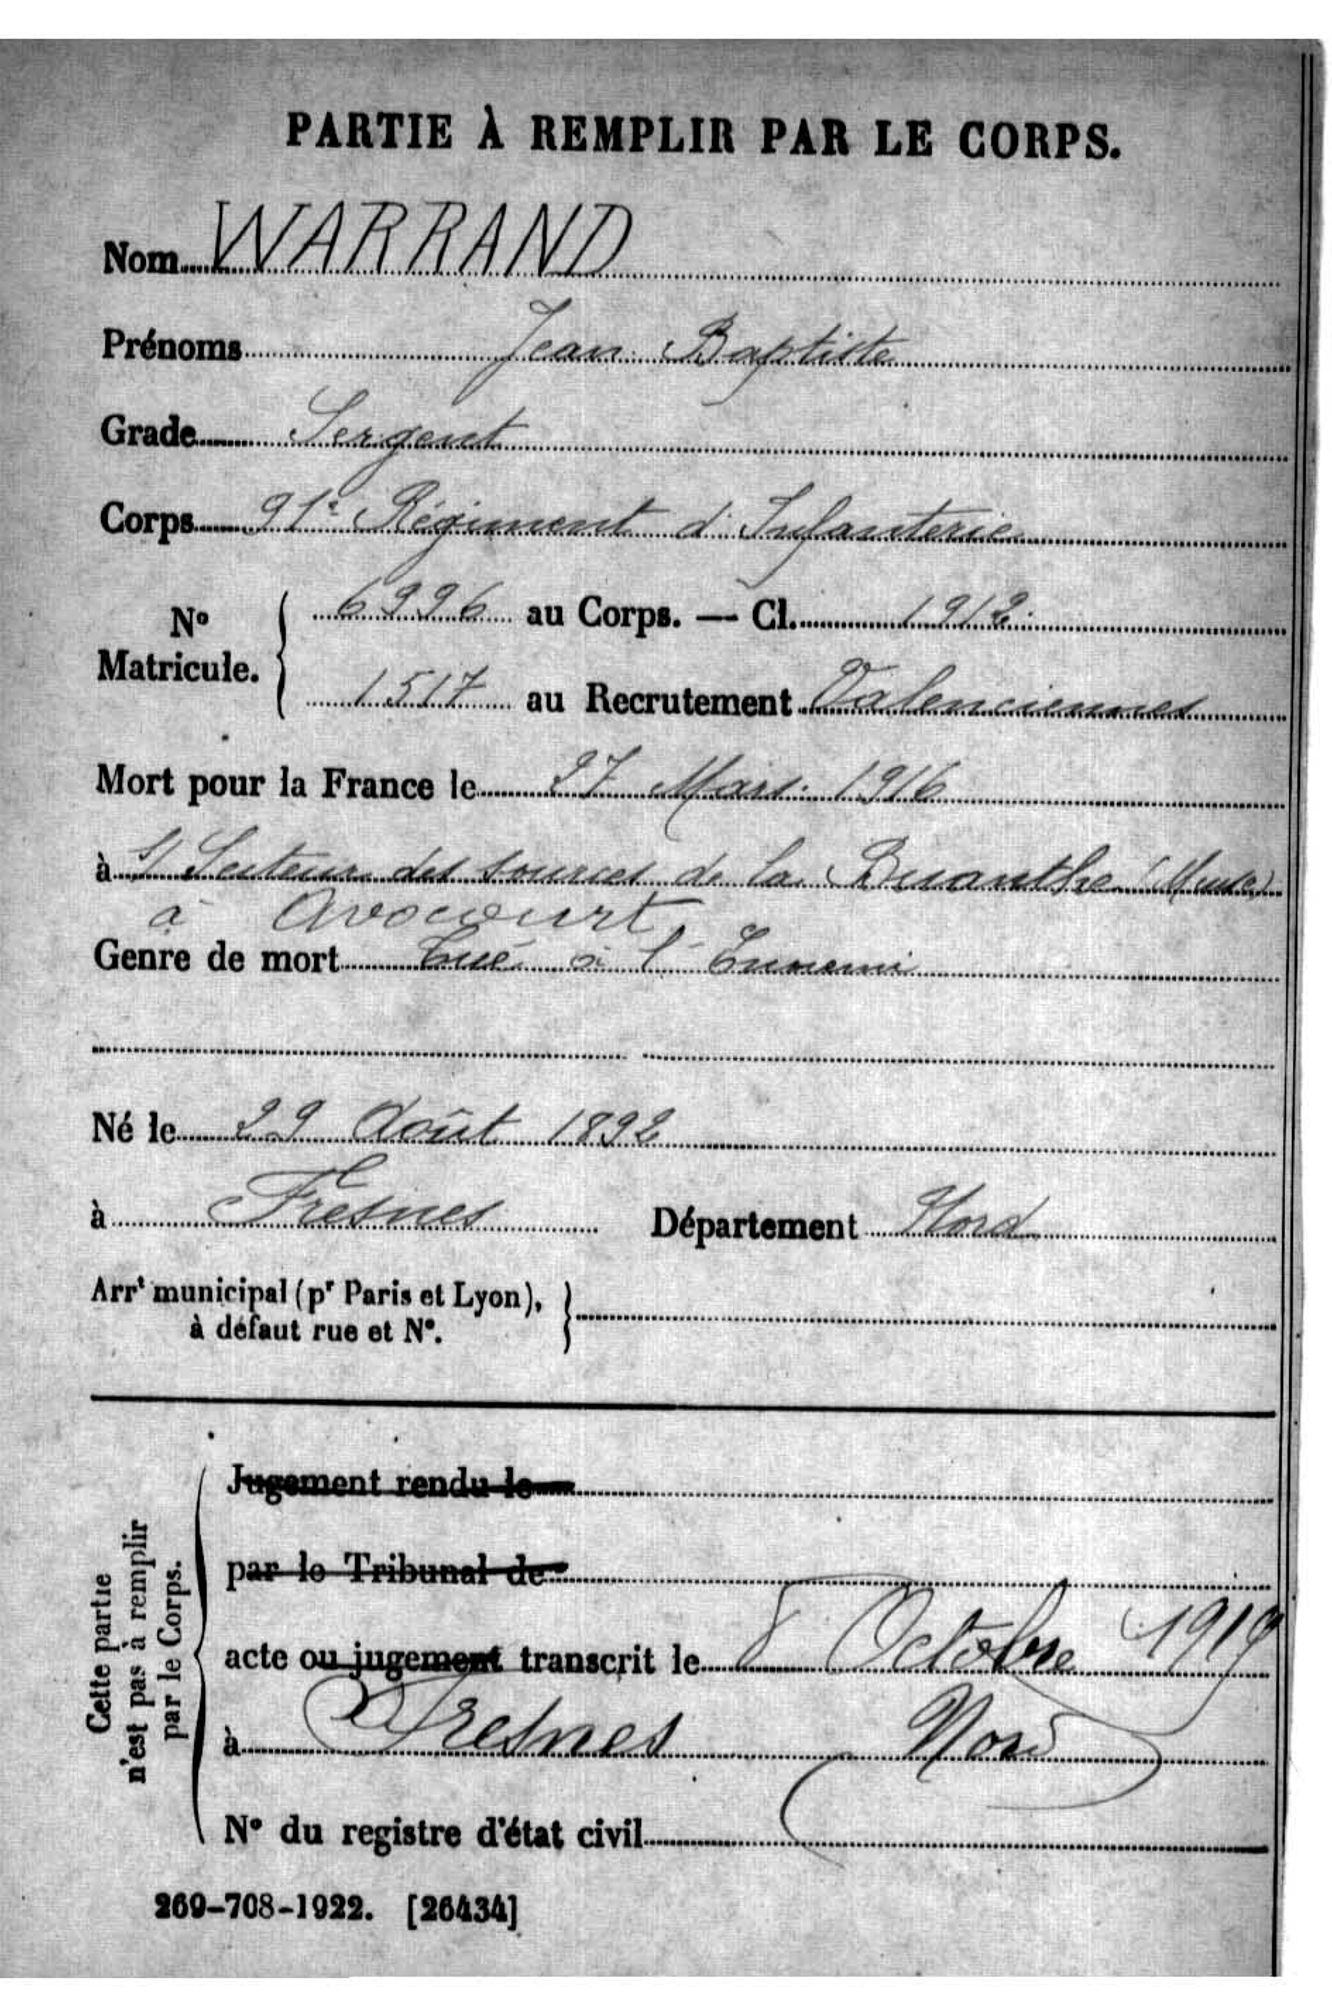 PARTIE À REMPLIR PAR LE CORPS.
Nom WARRAND
Prénoms Jean Baptiste
Grade Sergent
Corps 91e Régiment d'Infanterie
No Matricule. { 6996 au Corps. — Cl. 1912
1517 au Recrutement Valenciennes
Mort pour la France le 27 Mars 1916
à S/ Secteur des sources de la Buanthe (Meuse)
à Avocourt
Genre de mort Tué à l'Ennemi
Né le 29 Août 1892
à Fresnes Département Nord
Arrt municipal (pr Paris et Lyon),
à défaut rue et No.
Cette partie
n'est pas à remplir
par le Corps.
Jugement rendu le
par le Tribunal de
acte ou jugement transcrit le 8 Octobre 1919
à Fresnes Nord
No du registre d'état civil
269-708-1922. [26434]